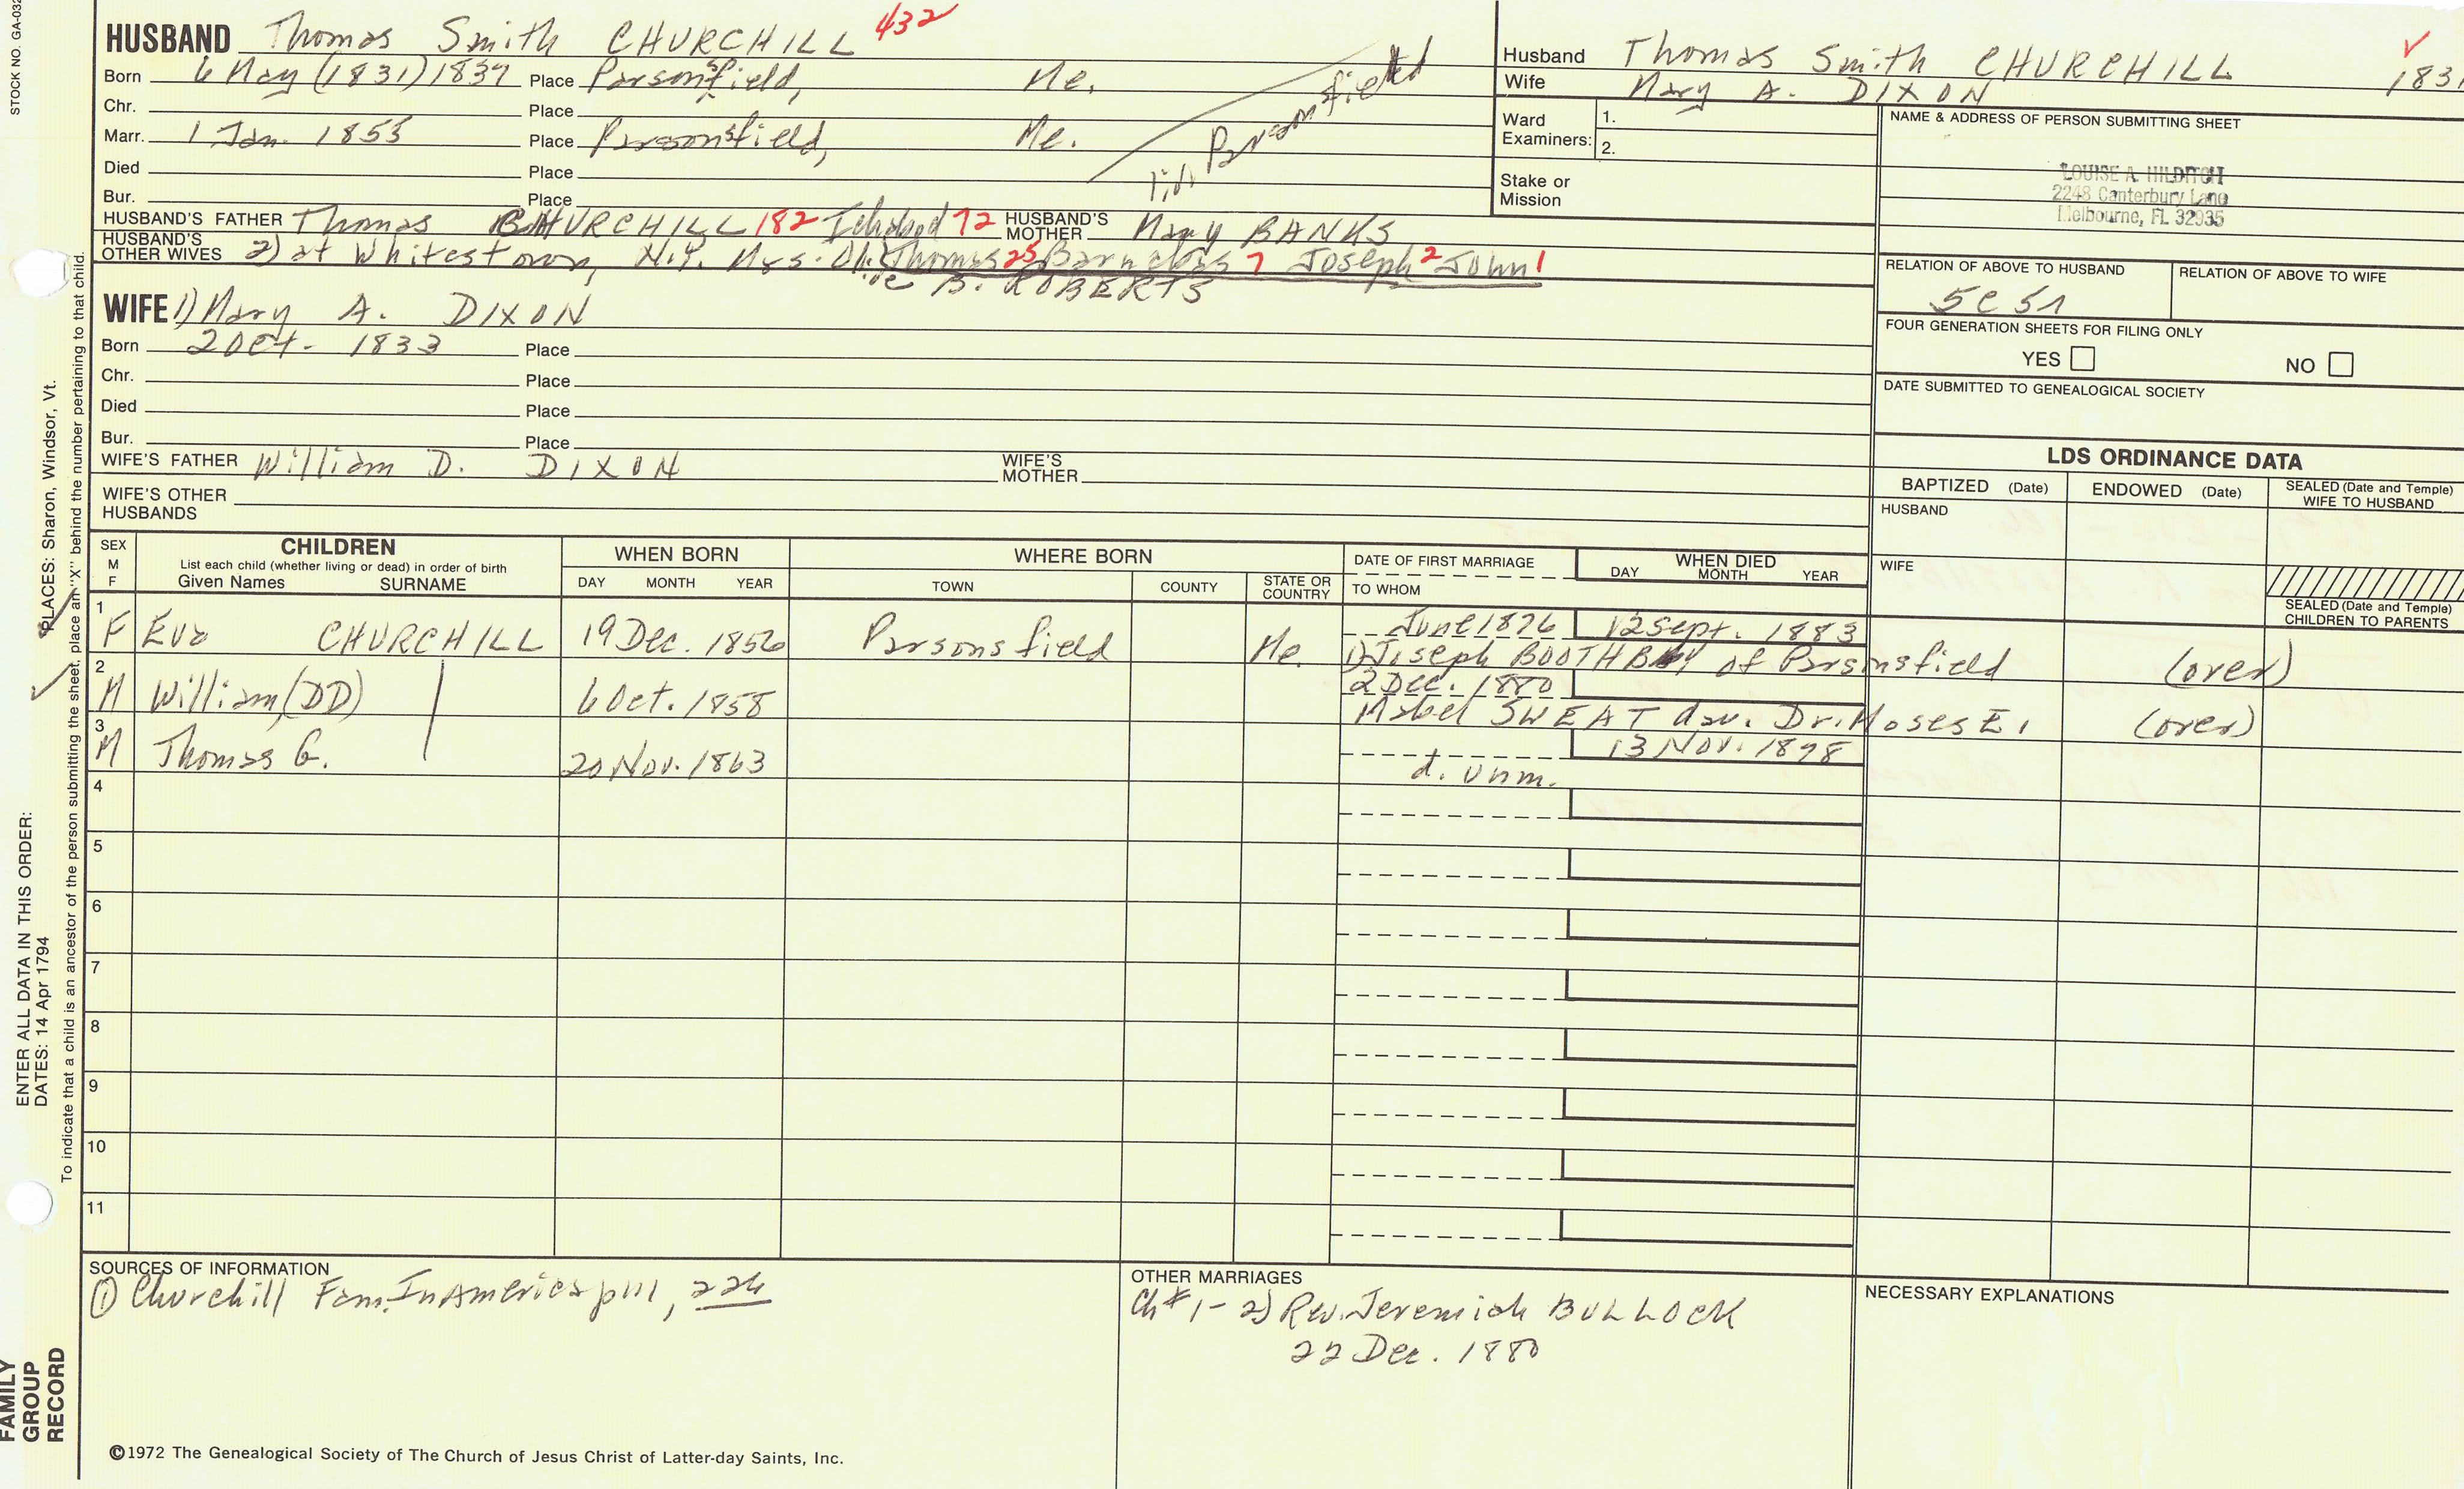 STOCK NO. GA-032
HUSBAND Thomas Smith CHURCHILL 432
Born 6 May (1831) 1837 Place Parsonsfield, Me.
Chr. Place
Marr. 1 Jan. 1855 Place Parsonsfield, Me.
Parsonsfield
Died Place
Bur. Place
HUSBAND'S FATHER Thomas CHURCHILL 182 Ichabod 72 HUSBAND'S MOTHER Mary BANKS
HUSBAND'S OTHER WIVES 2) at Whitestown, N.Y. Mrs. Thomas 25 Barnabas 7 Joseph 2 John 1
B. ROBERTS
WIFE 1) Mary A. DIXON
Born 2 Oct. 1833 Place
Chr. Place
Died Place
Bur. Place
WIFE'S FATHER William D. DIXON WIFE'S MOTHER
WIFE'S OTHER HUSBANDS
Husband Thomas Smith CHURCHILL 1831
Wife Mary A. DIXON
Ward Examiners: 1.
2.
Stake or Mission
NAME & ADDRESS OF PERSON SUBMITTING SHEET
LOUISE A. HILDITCH
2248 Canterbury Lane
Melbourne, FL 32935
RELATION OF ABOVE TO HUSBAND RELATION OF ABOVE TO WIFE
5C51
FOUR GENERATION SHEETS FOR FILING ONLY
YES NO
DATE SUBMITTED TO GENEALOGICAL SOCIETY
LDS ORDINANCE DATA
BAPTIZED (Date) ENDOWED (Date) SEALED (Date and Temple) WIFE TO HUSBAND
HUSBAND
WIFE
SEALED (Date and Temple) CHILDREN TO PARENTS
SEX M F
CHILDREN
List each child (whether living or dead) in order of birth
Given Names SURNAME
WHEN BORN
DAY MONTH YEAR
WHERE BORN
TOWN COUNTY STATE OR COUNTRY
DATE OF FIRST MARRIAGE
TO WHOM
WHEN DIED
DAY MONTH YEAR
1 F Eva CHURCHILL 19 Dec. 1856 Parsonsfield Me. June 1876 12 Sept. 1883
1) Joseph BOOTHBY of Parsonsfield (over)
2 M William, (DD) 6 Oct. 1858 2 Dec. 1880
Mabel SWEAT dau. Dr. Moses E. (over)
3 M Thomas G. 20 Nov. 1863 13 Nov. 1898
d. unm.
4
5
6
7
8
9
10
11
SOURCES OF INFORMATION
① Churchill Fam. In America p 111, 226
OTHER MARRIAGES
Ch #1 - 2) Rev. Jeremiah BULLOCK
22 Dec. 1880
NECESSARY EXPLANATIONS
©1972 The Genealogical Society of The Church of Jesus Christ of Latter-day Saints, Inc.
ENTER ALL DATA IN THIS ORDER:
DATES: 14 Apr 1794
PLACES: Sharon, Windsor, Vt.
To indicate that a child is an ancestor of the person submitting the sheet, place an "X" behind the number pertaining to that child.
FAMILY GROUP RECORD